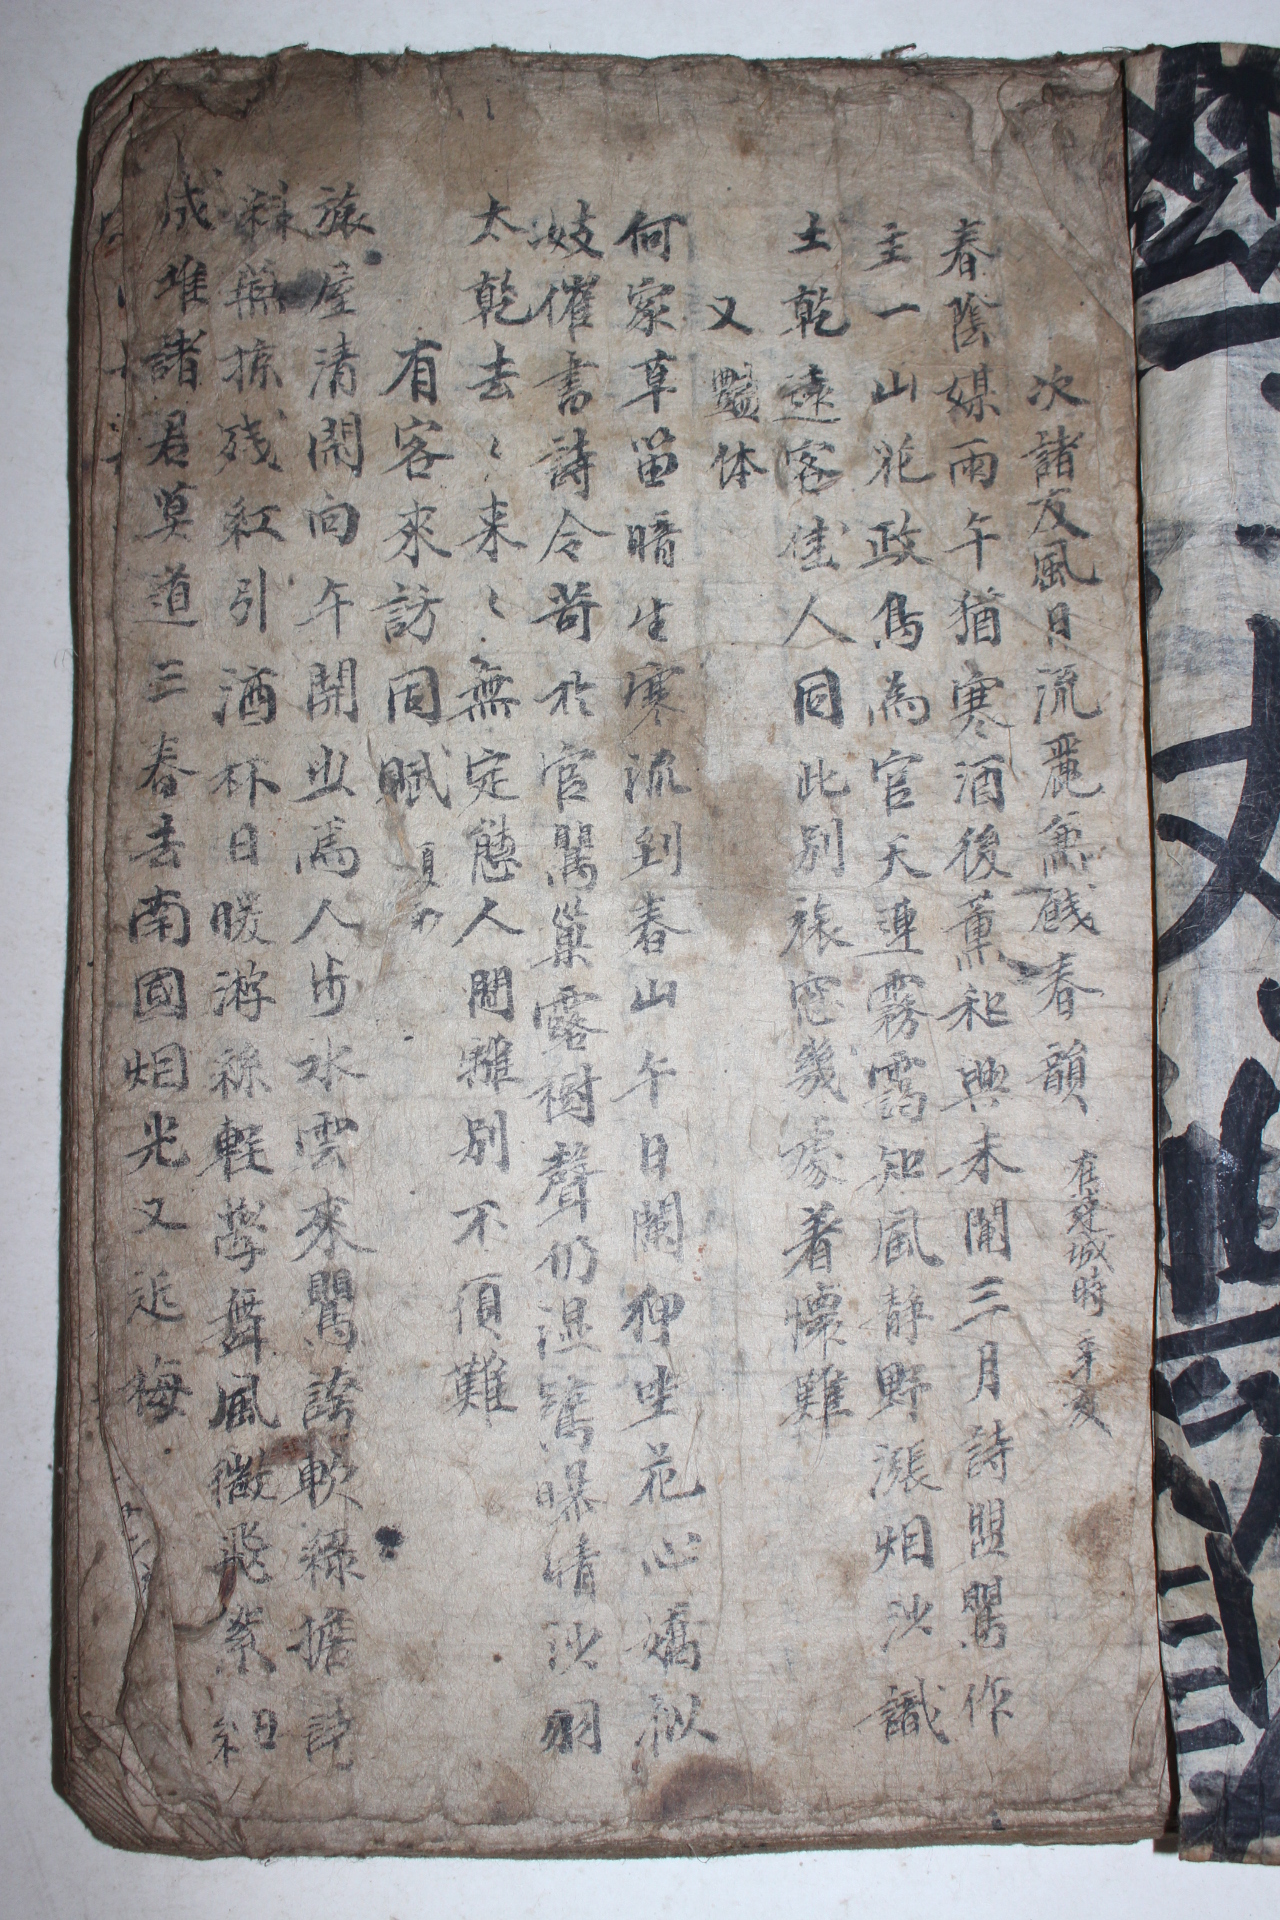 次諸友風日流麗兼餞春韻 在達城時 辛亥
春陰媒雨午猶寒酒後薰和興未闌三月詩盟鶯作
主一山花政鳥為官天連霧靄知風静野漲烟沙識
土乾遠客佳人同此別旅窓幾處着懷難
又艷体
何家草笛暗生寒流到春山午日闌狎坐花心嬌似
妓催書詩令苛於官鶯巢露樹聲仍湿鷺曝晴沙羽
太乾去〻来〻無定態人間離別不須難
有客來訪同賦
旅屋清閑向午開出為人步水雲來鶯誇軟綠擔
蕪掠残紅引酒杯日暖游絲輕學舞風微飛絮細
成堆諸君莫道三春去南國烟光又近梅